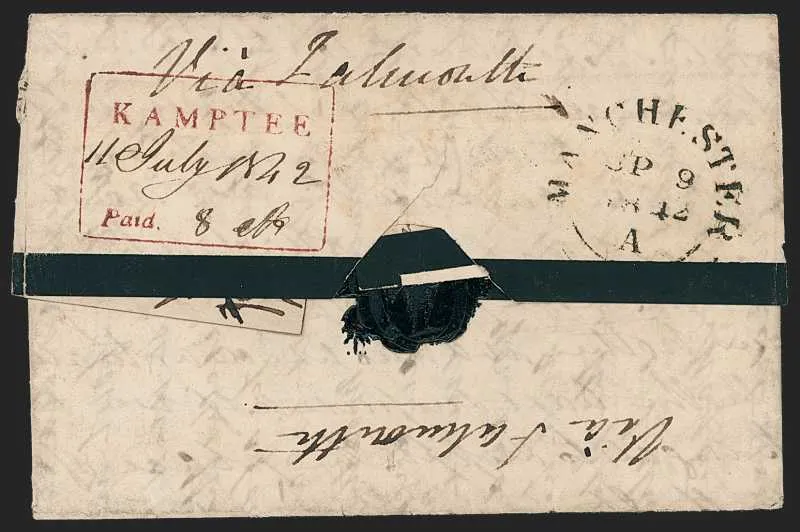 Via Falmouth
KAMPTEE
11 July 1842
Paid. 8 As
MANCHESTER
SP 9
1842
A
Via Falmouth